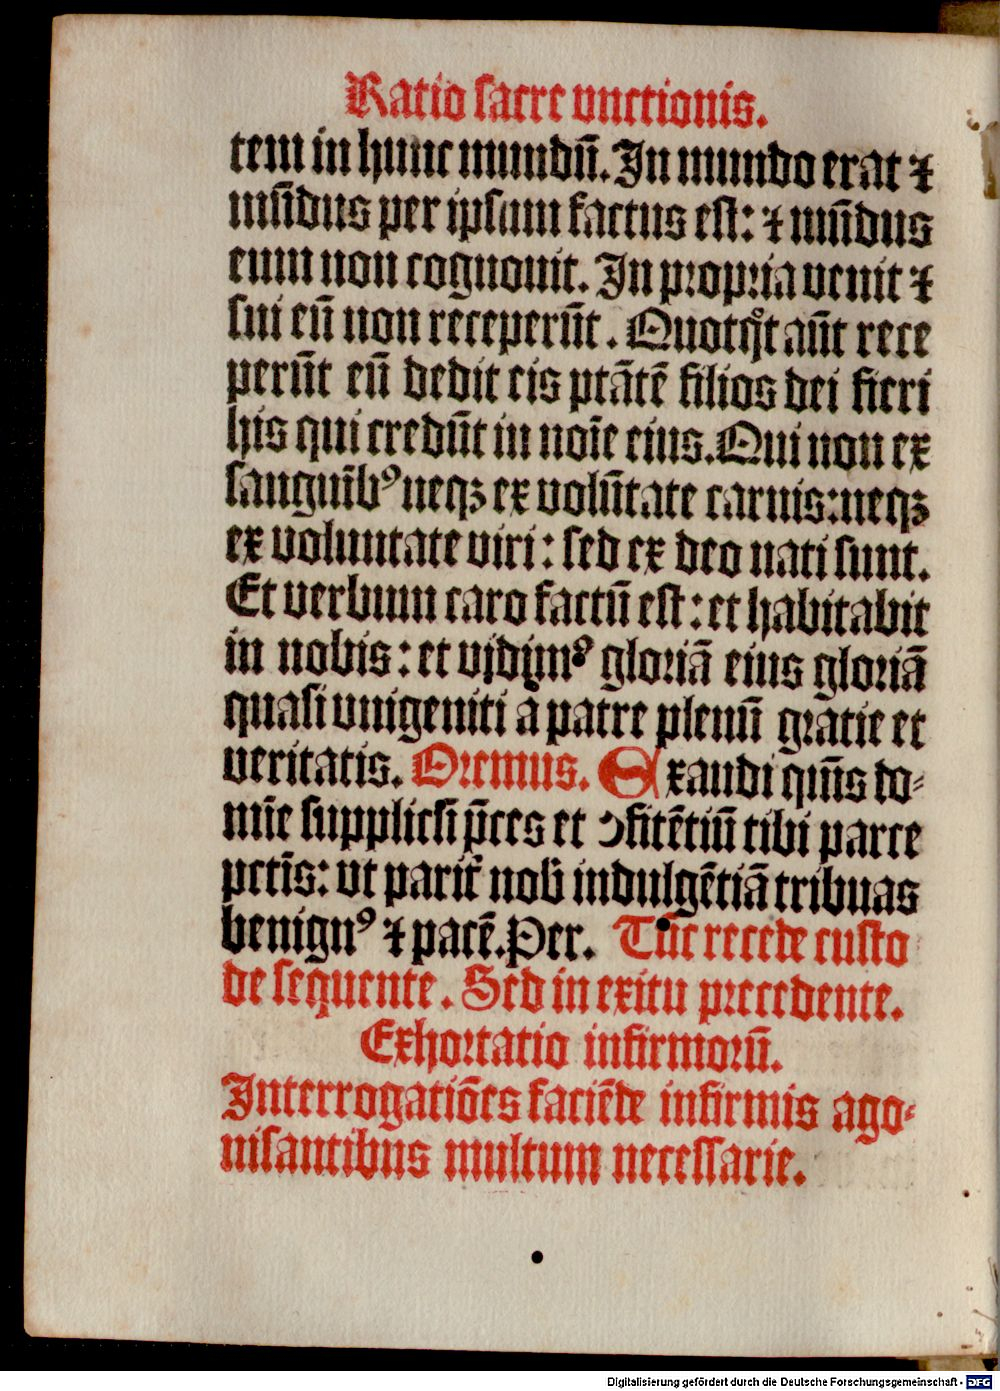 Ratio sacre vnctionis.
tem in hunc mundū. In mundo erat ⁊
mūdus per ipsum factus est: ⁊ mūdus
eum non cognouit. In propria venit ⁊
sui eū non receperūt. Quotqͦt aūt rece
perūt eū dedit eis ptātē filios dei fieri
his qui credūt in noīe eius. Qui non ex
sanguībꝰ neqꝫ ex volūtate carnis: neqꝫ
ex voluntate viri: sed ex deo nati sunt.
Et verbum caro factū est: et habitabit
in nobis: et vidimꝰ gloriā eius gloriā
quasi vnigeniti a patre plenū gratie et
veritatis. Oremus. Exaudi qm̄s do-
mīe supplicū p̄ces et ꝯfitētiū tibi parce
pctīs: vt parit̄ nob̄ indulgētiā tribuas
benignꝰ ⁊ pacē. Per. Tūc recede custo
de sequente. Sed in exitu precedente.
Exhortatio infirmorū.
Interrogatiōes faciēde infirmis ago-
nisantibus multum necessarie.
Digitalisierung gefördert durch die Deutsche Forschungsgemeinschaft - DFG